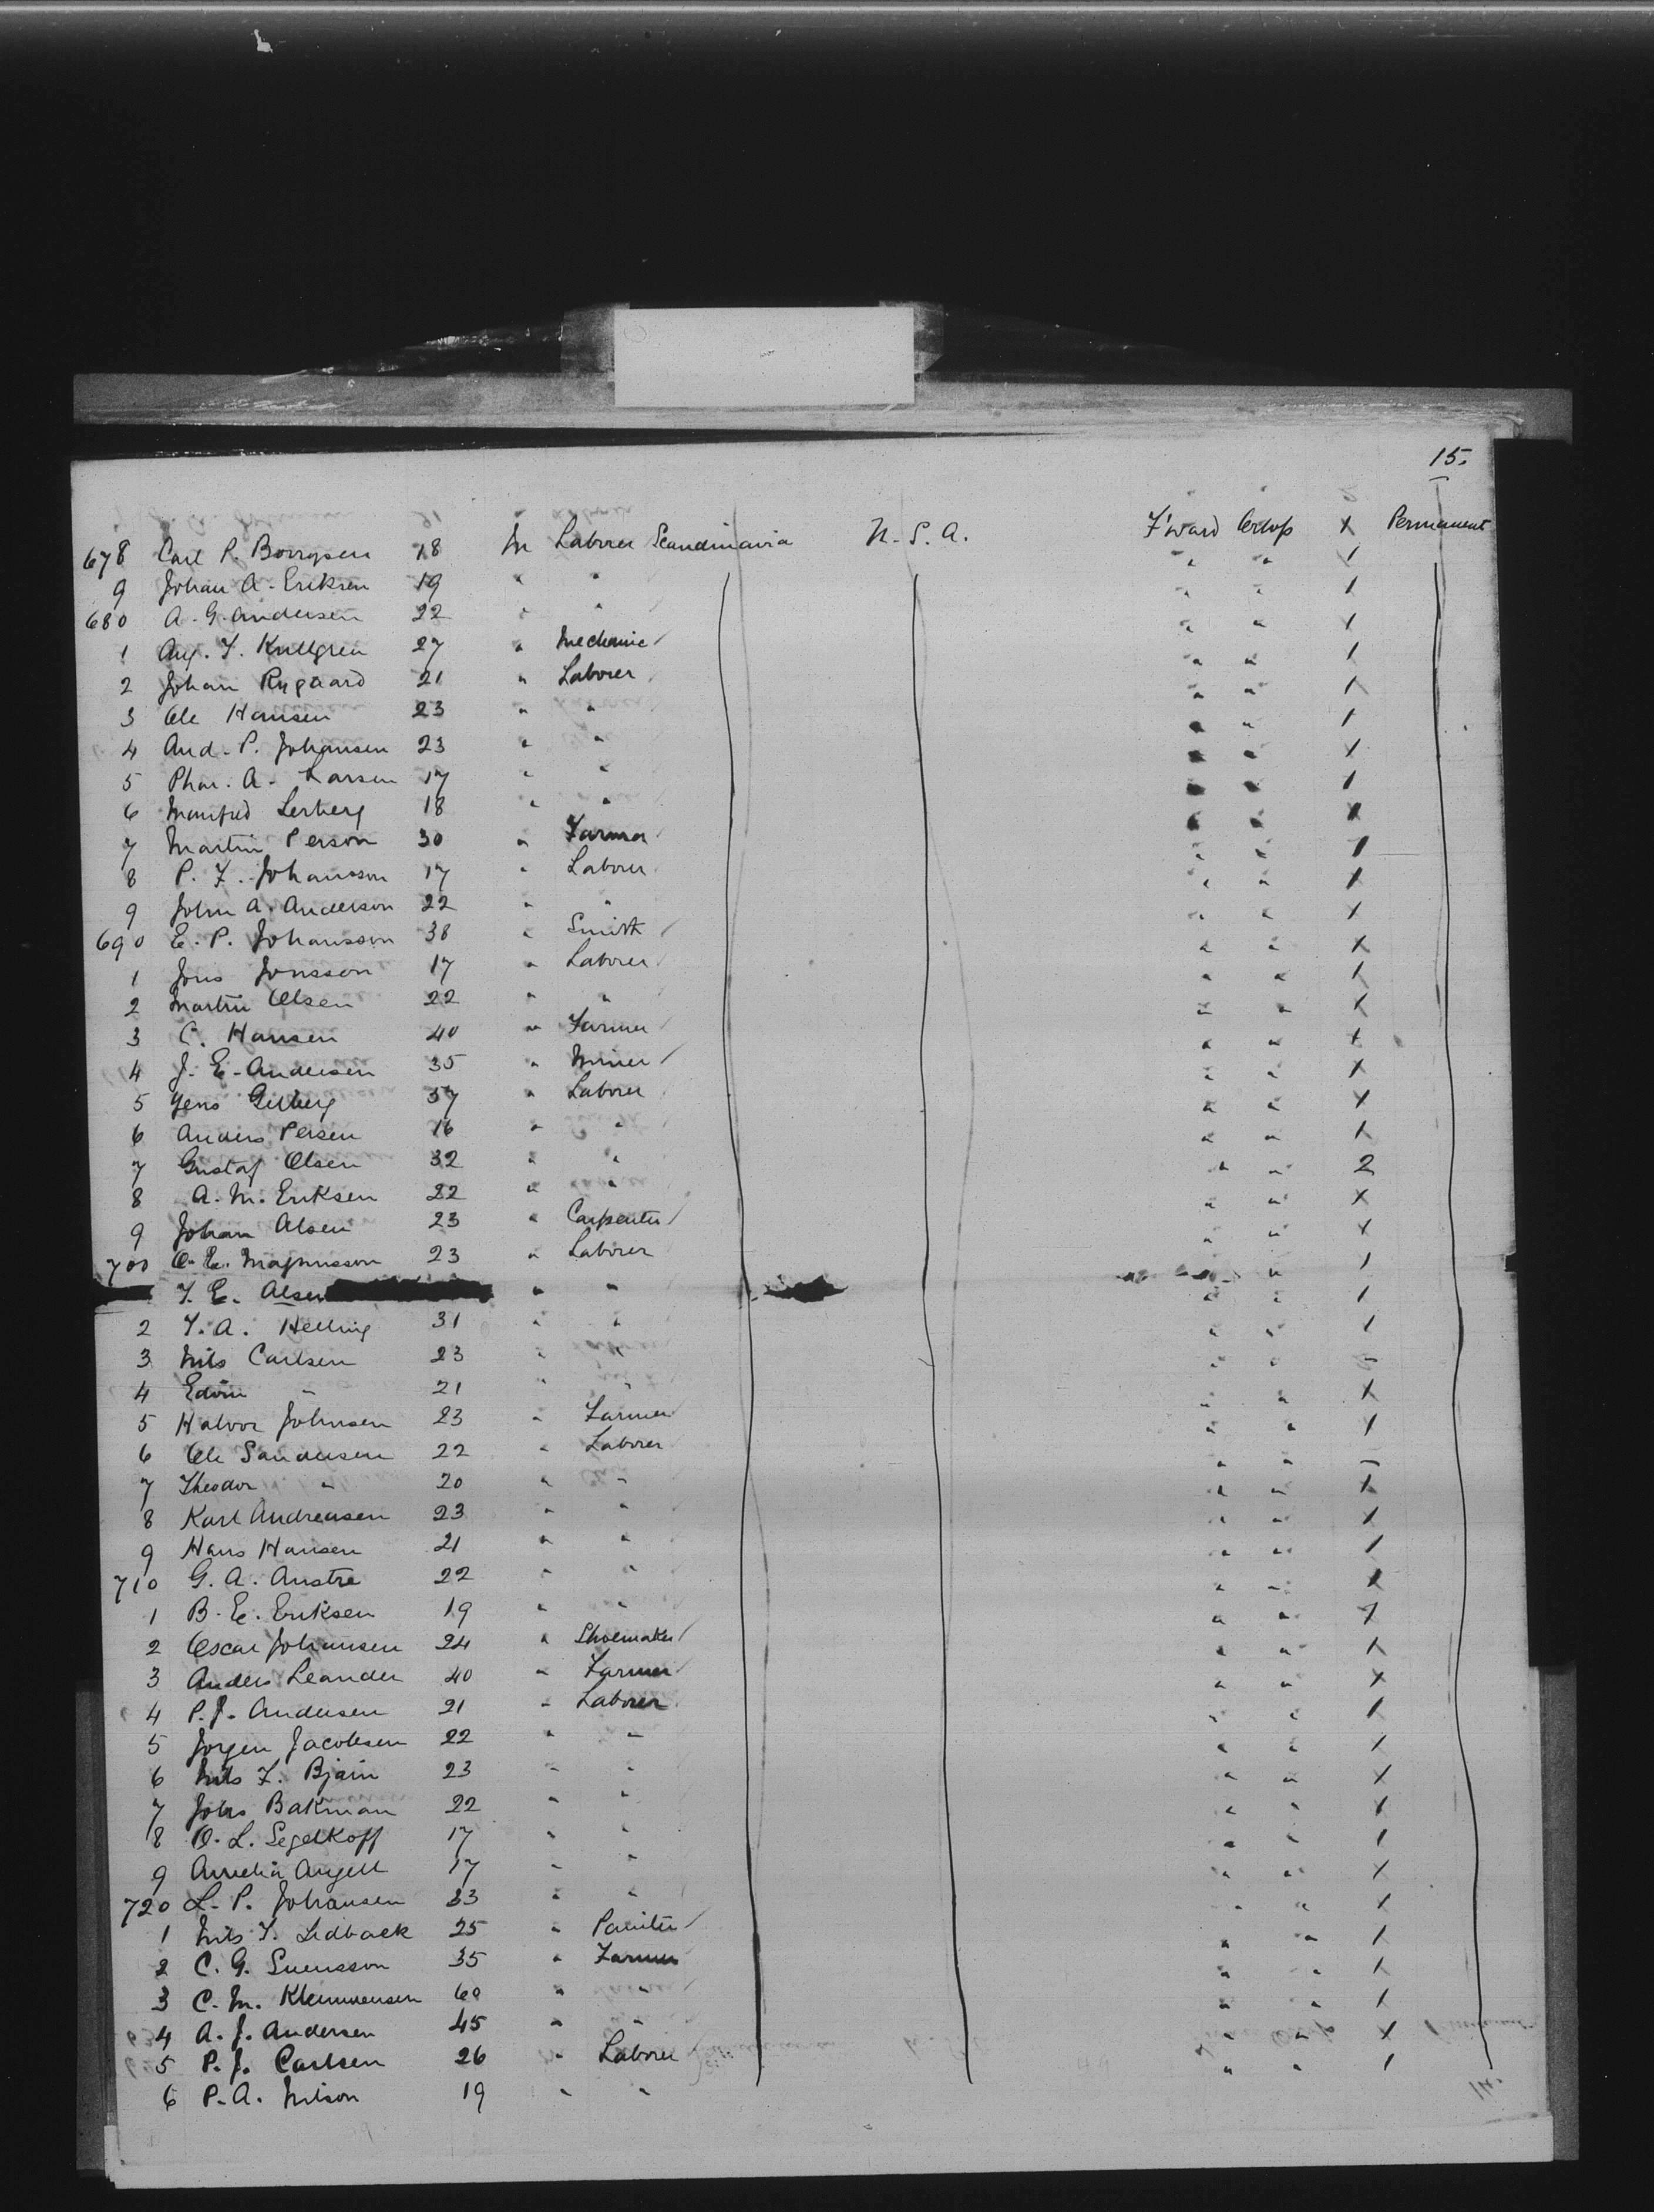 15.
678 Carl P. Borrgsen 18 m Laborer Scandinavia U.S.A. F'ward 1 Permanent
9 Johan A. Eriksen 19 " " " " 1
680 A. G. Andersen 22 " " " " 1
1 Aug. F. Kullgren 27 " Mechanic " " 1
2 Johan Rygaard 21 " Laborer " " 1
3 Ole Hansen 23 " " " " 1
4 And. P. Johansen 23 " " " " 1
5 A. Larsen 17 " " " " 1
6 Manfred Lerberg 18 " " " " 1
7 Martin Person 30 " Farmer " " 1
8 P. F. Johansson 17 " Laborer " " 1
9 John A. Anderson 22 " " " " 1
690 E. P. Johansson 38 " Smith " " 1
1 Jons Jonsson 17 " Laborer " " 1
2 Martin Olsen 22 " " " " 1
3 C. Hansen 40 " Farmer " " 1
4 J. E. Andersen 35 " Miner " " 1
5 Jens 37 " Laborer " " 1
6 Anders Persen 16 " " " " 1
7 Gustaf Olsen 32 " " " " 2
8 A. M. Eriksen 22 " " " " 1
9 Johan Olsen 23 " Carpenter " " 1
700 O. E. Magnusson 23 " Laborer " " 1
F. E. Olsen " " " " 1
2 F. A. Helling 31 " " " " 1
3 Nils Carlsen 23 " " " " -
4 Edvin " 21 " " " " 1
5 Halvor Johnsen 23 " Farmer " " 1
6 Ole Sandersen 22 " Laborer " " -
7 Theodor " 20 " " " " 1
8 Karl Andreasen 23 " " " " 1
9 Hans Hansen 21 " " " " 1
710 G. A. Austre 22 " " " " 1
1 B. E. Eriksen 19 " " " " 1
2 Oscar Johansen 24 " Shoemaker " " 1
3 Anders Leander 40 " Farmer " " 1
4 P. J. Andersen 21 " Laborer " " 1
5 Jorgen Jacobsen 22 " " " " 1
6 Nils F. Bjärn 23 " " " " 1
7 Johs Bakman 22 " " " " 1
8 O. L. Segelkoff 17 " " " " 1
9 Angell 17 " " " " 1
720 L. P. Johansen 33 " " " " 1
1 Nils F. Ledback 25 " Painter " " 1
2 C. G. Svensson 35 " Farmer " " 1
3 C. M. Klemmensen 60 " " " " 1
4 A. J. Andersen 45 " " " " 1
5 P. J. Carlsen 26 " Laborer " " 1
6 P. A. Nilson 19 " "